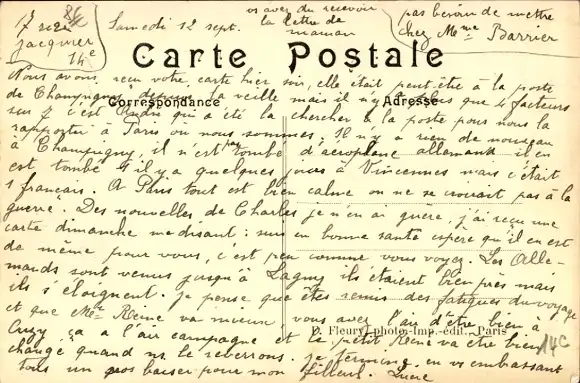 7 rue
Jacquier
14e
Samedi 12 sept.
vs avez du recevoir
la lettre de
maman
pas besoin de mettre
chez Mme Barrier
Carte Postale
Correspondance
Adresse
Nous avons recu votre carte hier soir, elle était peut-être à la poste
de Champigny depuis la veille mais il n'y a plus que 4 facteurs
sur 7 c'est qui a été la chercher à la poste pour nous la
rapporter à Paris où nous sommes. Il n'y a rien de nouveau
à Champigny, il n'est pas tombé d'aéroplane allemand il en
est tombé 1 il y a quelques jours à Vincennes mais c'était
1 français. A Paris tout est bien calme on ne se croirait pas à la
guerre. Des nouvelles de Charles je n'en ai guère, j'ai reçu une
carte dimanche me disant : suis en bonne santé espère qu'il en est
de même pour vous, c'est peu comme vous voyez. Les Alle-
mands sont venus jusqu'à Lagny ils étaient bien près mais
ils s'éloignent. je pense que êtes remis des fatigues du voyage
et que Mr Reine va mieux vous avez l'air d'être bien à
ça a l'air campagne et le petit René va être bien
changé quand ns le reverrons. je termine en vs embrassant
tous un gros baiser pour mon filleul. Lucie
P. Fleury, photo-Imp. édit., Paris
14C